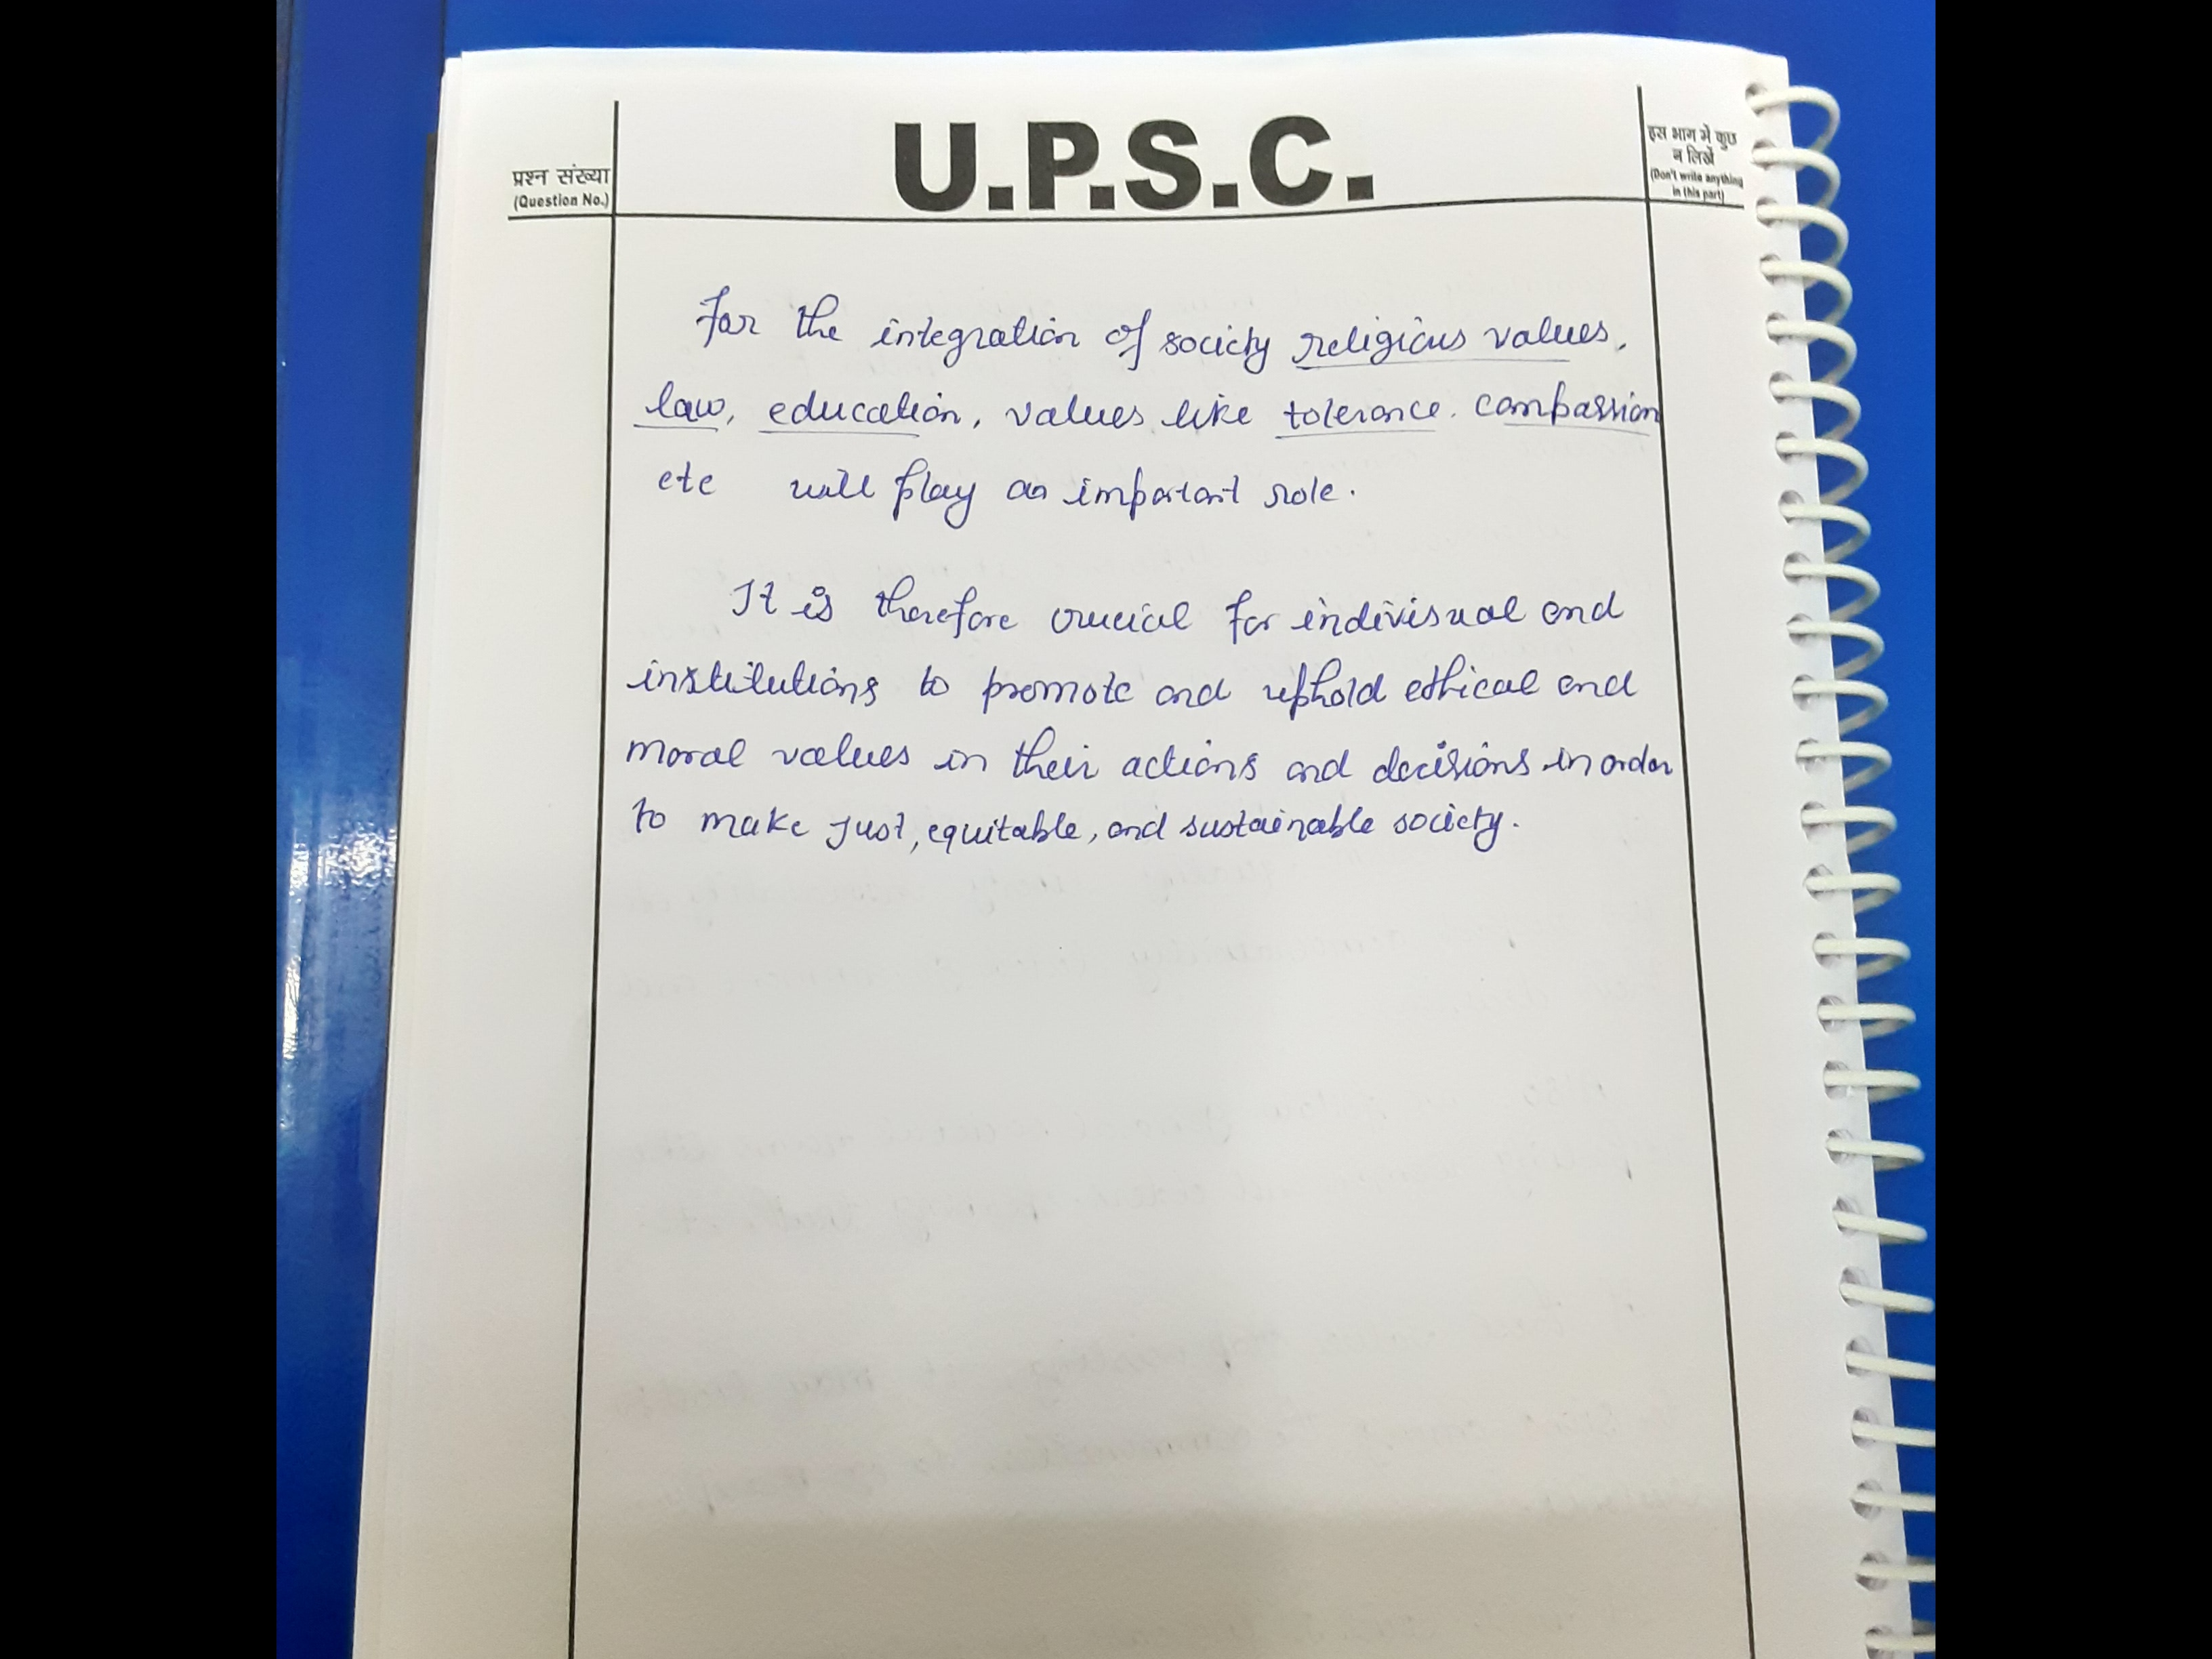 U.P.S.C.
प्रश्न संख्या
(Question No.)
इस भाग में कुछ
न लिखें
(Don't write anything
in this part)
For the integration of society religious values,
law, education, values like tolerance, compassion
etc will play an important role.
It is therefore crucial for indivisual and
institutions to promote and uphold ethical and
moral values in their actions and decisions in order
to make just, equitable, and sustainable society.